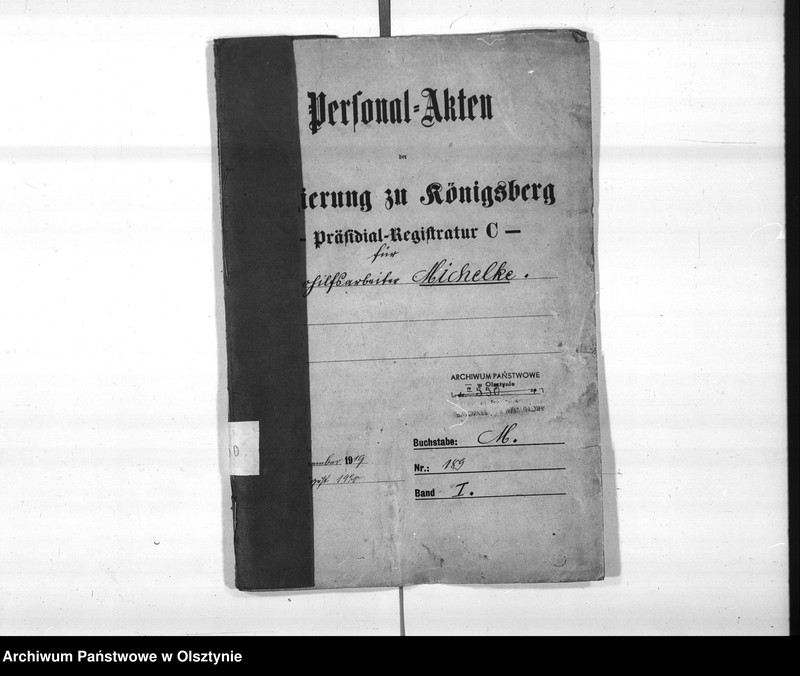 Personal-Akten
der
ierung zu Königsberg
- Präsidial-Registratur C —
für
ohilfsarbeiter Michelke.
ARCHIWUM PAŃSTWOWE
w Olsztynie
550
Buchstabe: M.
ember 1919
Nr.: 189
1920
Band I.
Archiwum Państwowe w Olsztynie